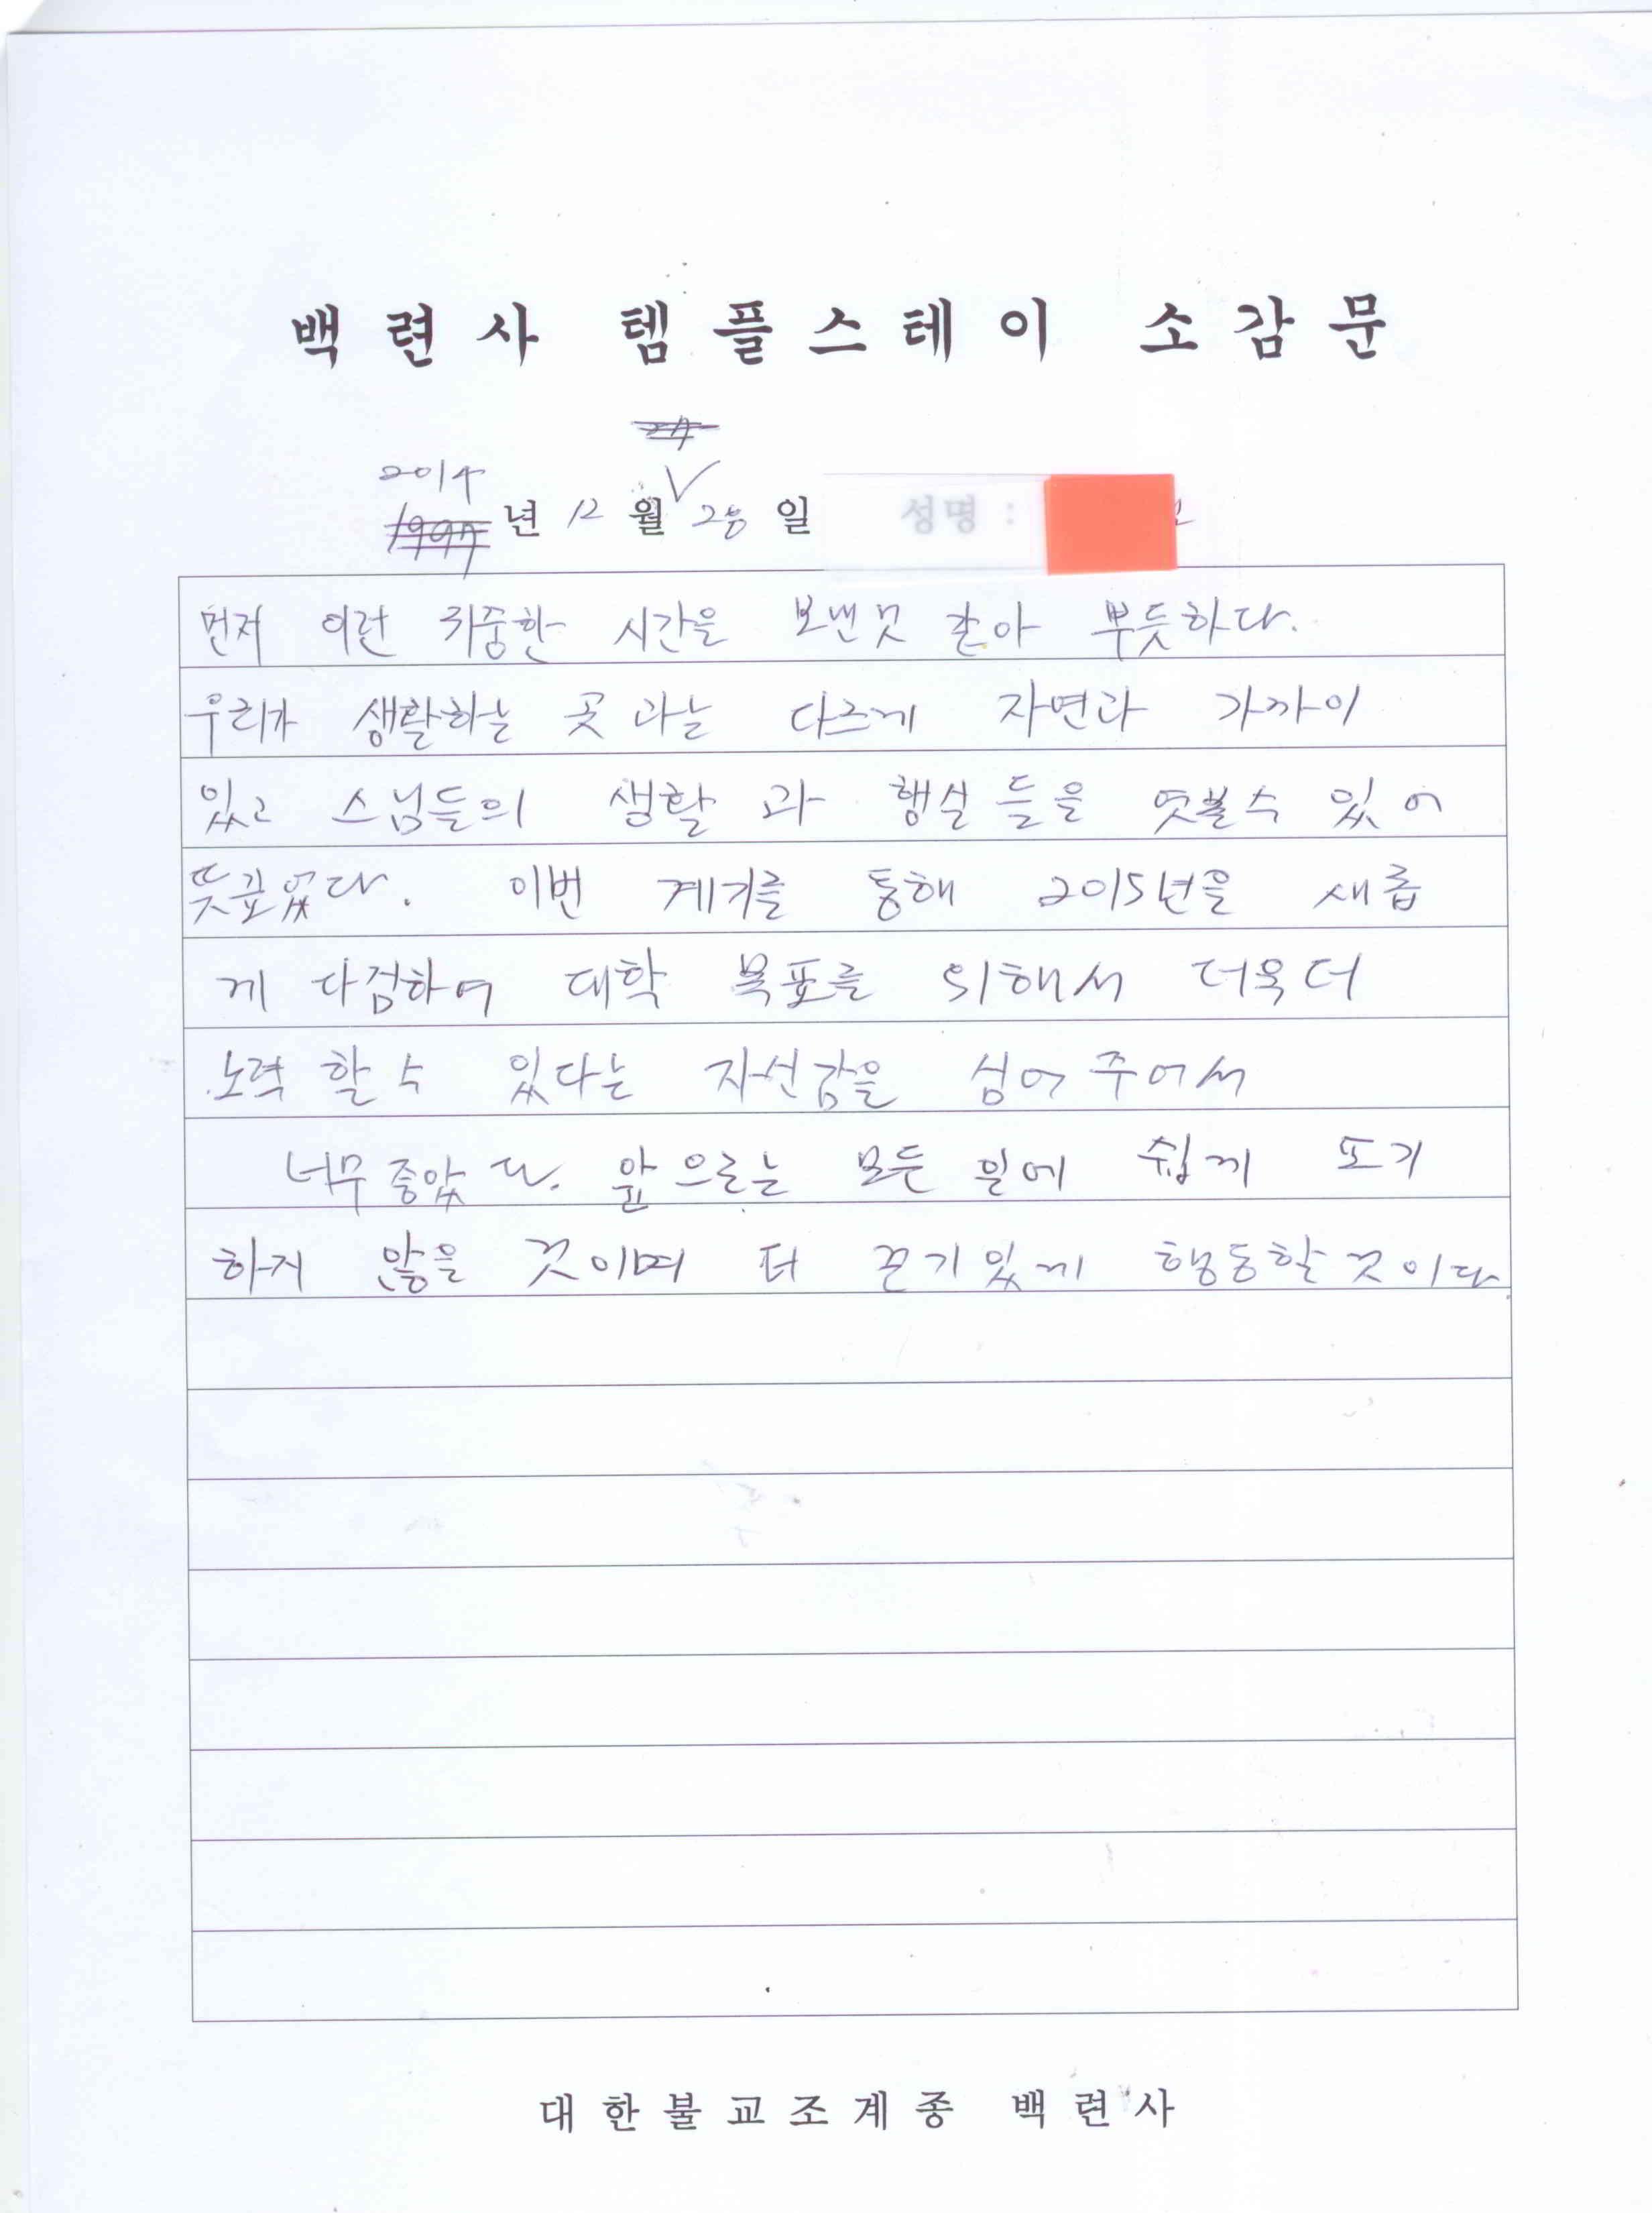 백련사 템플스테이 소감문
24
2014
1997 년 12 월 28 일 성명 :
먼저 이런 귀중한 시간을 보낸것 같아 뿌듯하다.
우리가 생활하는 곳 과는 다르게 자연과 가까이
있고 스님들의 생활 과 행실 들을 엿볼수 있어
뜻깊었다. 이번 계기를 통해 2015년을 새롭
게 다짐하여 대학 목표를 위해서 더욱 더
노력 할 수 있다는 자신감을 심어 주어서
너무 좋았다. 앞으로는 모든 일에 쉽게 포기
하지 않을 것이며 더 끈기있게 행동할 것이다
대한불교조계종 백련사